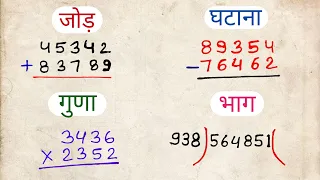 जोड़
45342
+ 83789
घटाना
89354
- 76462
गुणा
3436
x 2352
भाग
938 ) 564851 (